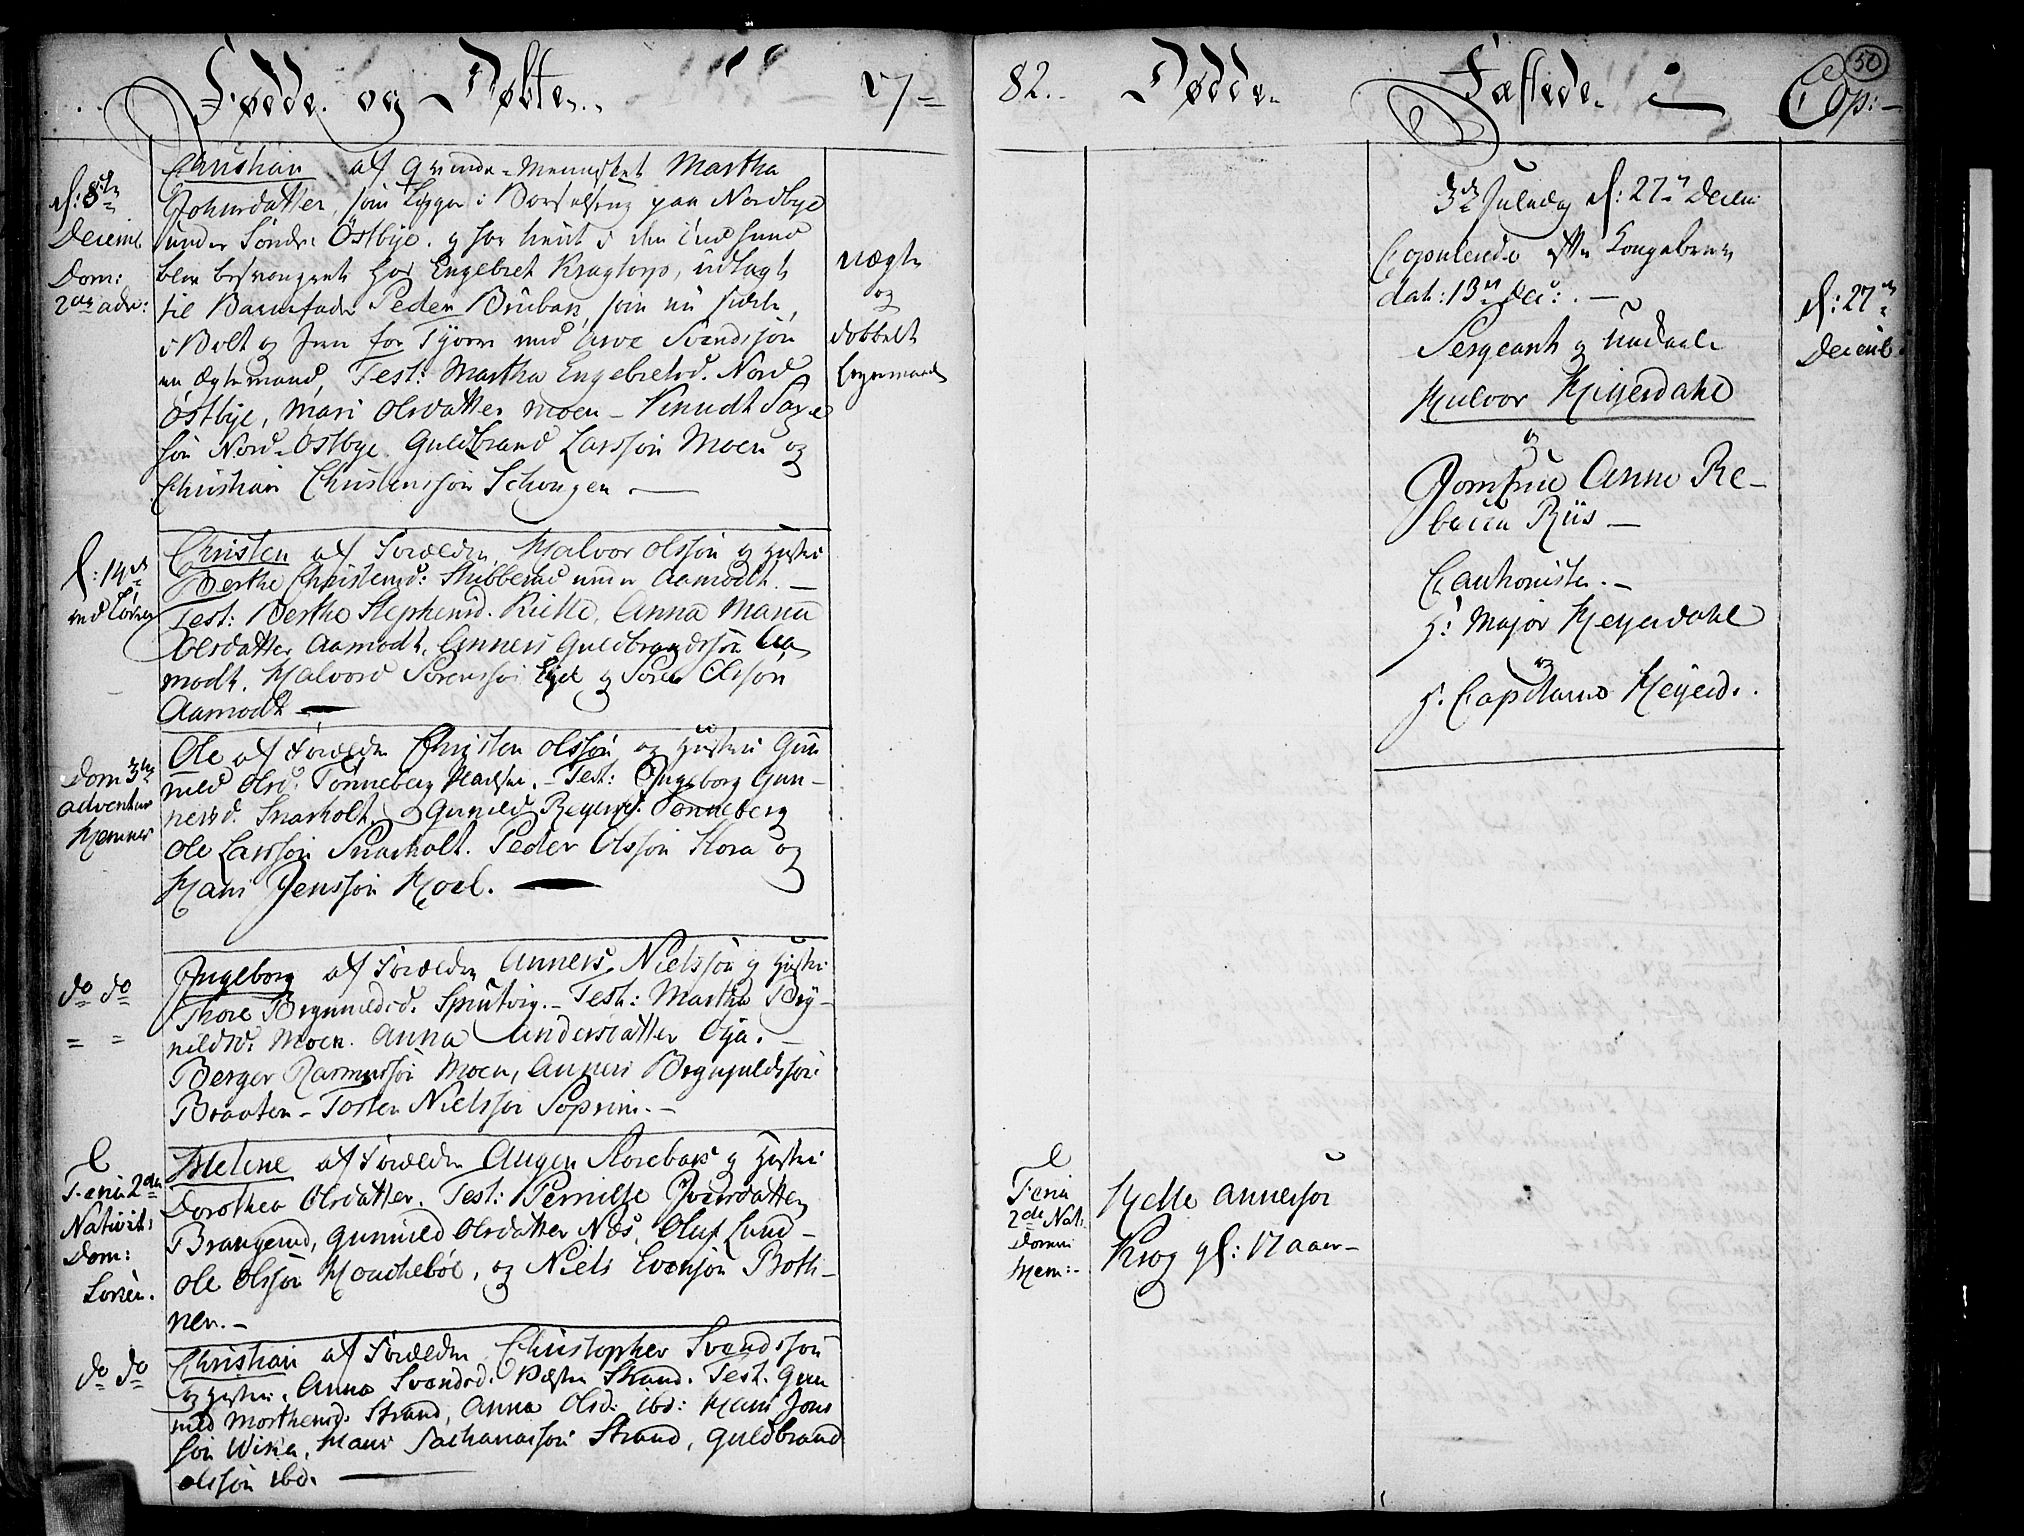 Fødde og Døbte
17=
d: 8de
Decemb.
Dom:
2da adv:
Christian af Qvinde-Mennisket Martha
Johnsdatter, som ligger i paa Nordbye
under Søndre Østbye. og har
blev besvangret hos Engebret Kragtorp, udlagt
til Barnefader Peder Brubak, som nu
i Bolt og for med Arve Svendssøn
en Ægtemand, Test: Martha Engebretsd. Nord
Østbye, Mari Olsdatter Moen - Knudt
søn Nord-Østbye. Guldbrand Larssøn Moen og
Christian Christenssøn Schougen.
Uægte
og
dobbelt
Leyermaal
d: 14de
ved
Christen af Forældre Halvor Olssøn og Hustru
Berthe Christensd: Skibberud under Aamodt.
Test: Berthe Stephensd. Kielle, Anna Maria
Olsdatter Aamodt, Anners Guldbrandssøn Aa
modt. Halvord Sørenssøn og Søren Olssøn
Aamodt
Dom 3tia
adventus
Hemnes
Ole af Forældre Christen Olssøn og Hustru Gun
nild Olsd. Tønneberg Test: Ingeborg Gun-
nersd. Snarholt, Gunnild Tønneberg
Ole Larssøn Snarholt. Peder Olssøn Hora og
Hans Jenssøn Hoel.
do do
= =
Ingeborg af Forældre Anners Nielssøn og Hustru
Thore Brynnildsd. Spittvig. - Test: Martha Bry-
nildsd: Moen. Anna Andersdatter Øya.
Berger Rasmussøn Moen, Anners Brynjuldssøn
Braaten - Torsten Nielssøn Soprim.
Feria 2da
Nativit:
Dom:
Helene af Forældre Augen Horebak og Hustru
Dorothea Olsdatter. Test: Pernille Iversdatter
Brangerud, Gunnild Olsdatter Næs, Oluf Lund-
Ole Olssøn Houchebøe, og Niels Evenssøn Botti-
nen.
do do
Christian af Forældre Christopher Svendssøn
og Hustru Anna Svendsd. Strand. Test. Gun
nild Morthensd. Strand, Anna Olsd: ibd: Hans Jons
søn Wiika, Hans Sachariassøn Strand, Guldbrand
Olssøn ibd.
82.
Dødde
Fæstede
Cop:
50
Feria
2de Nat:
Domini
Hem:
Helle Annerssøn
Krog gl: 17 aar
3de Juledag d: 27de Decem
Copulerede efter Kongebrev
dat: 13de Dec:
Sergeant og
Halvor Heyerdahl
og
Jomfrue Anne Re-
becca Riis
Cautionister.
Hr: Major Heyerdahl
og
Hr. Capitaine Heyerd.
d: 27de
Decemb